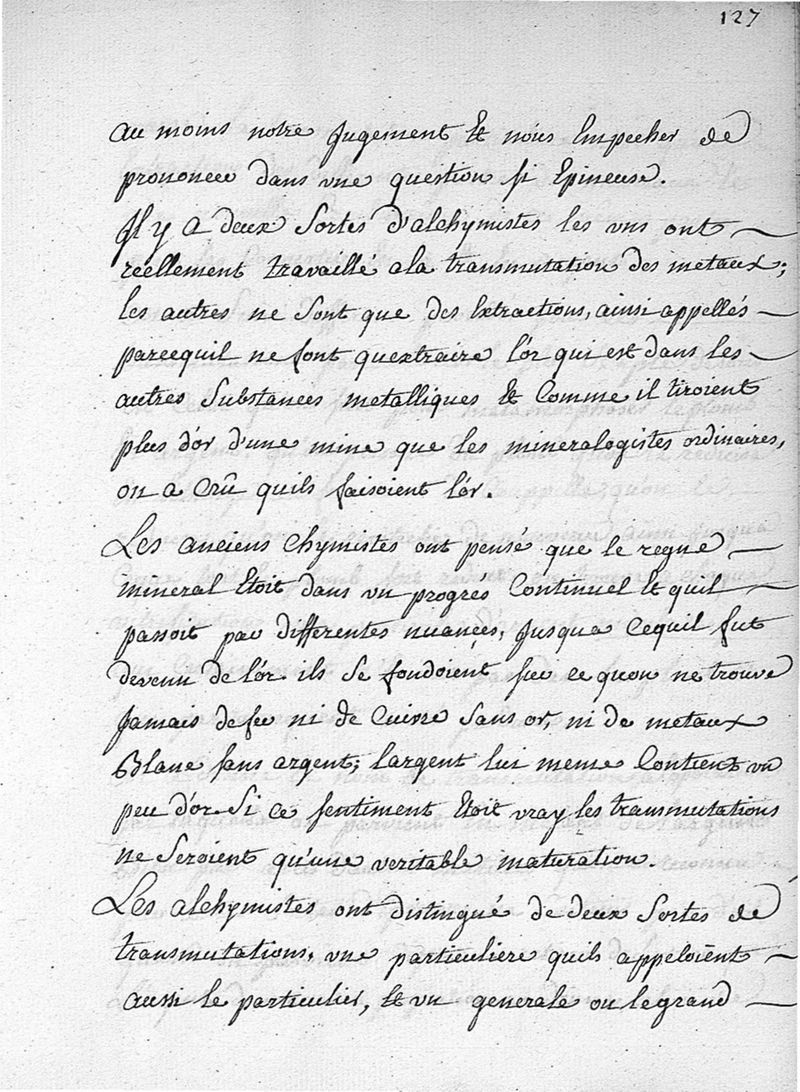 127
au moins notre Jugement Et nous Empecher de
prononcer dans vne question si Epineuse.
Jl y a deux Sortes d'alchymistes les vns ont
reellement travaillé ala transmutation des metaux;
les autres ne Sont que des Extractions, ainsi appellés
parcequil ne font quextraire l'or qui est dans les
autres Substances metalliques Et Comme il tiroient
plus d'or d'une mine que les mineralogistes ordinaires,
on a Crû quils faisoient l'or.
Les anciens Chymistes ont pensé que le regne
mineral Etoit dans vn progrés Continuel Et quil
passoit par differentes nuances, Jusqua Cequil fut
devenu de l'or ils Se fondoient sur ce quon ne trouve
Jamais de fer ni de Cuivre Sans or, ni de metaux
Blanc sans argent; largent lui meme Contient vn
peu d'or Si ce sentiment Etoit vray les transmutations
ne Seroient qu'une veritable maturation.
Les alchymistes ont distingué de deux Sortes de
transmutations, vne particuliere quils appeloient
aussi le particulier, Et vn generale ou le grand